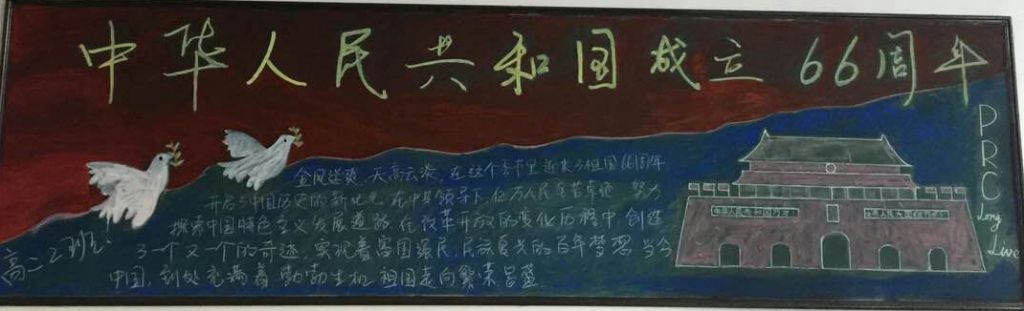 中华人民共和国成立66周年
金风送爽，天高云淡，在这个季节里迎来了祖国66周年
开启了中国历史的新纪元，在中共领导下，亿万人民 努力
探索中国特色主义发展道路，在改革开放的变化历程中，创造
了一个又一个的奇迹，实现着富国强民，民族复兴的百年梦想，当今
中国，到处充满着勃勃生机，祖国走向繁荣昌盛
高二2班！
中华人民共和国万岁
PRC
Long
Live